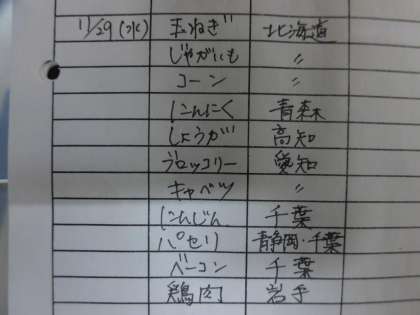 11/29(水) 玉ねぎ 北海道
じゃがいも 〃
コーン 〃
にんにく 青森
しょうが 高知
ブロッコリー 愛知
キャベツ 〃
にんじん 千葉
パセリ 静岡・千葉
ベーコン 千葉
鶏肉 岩手